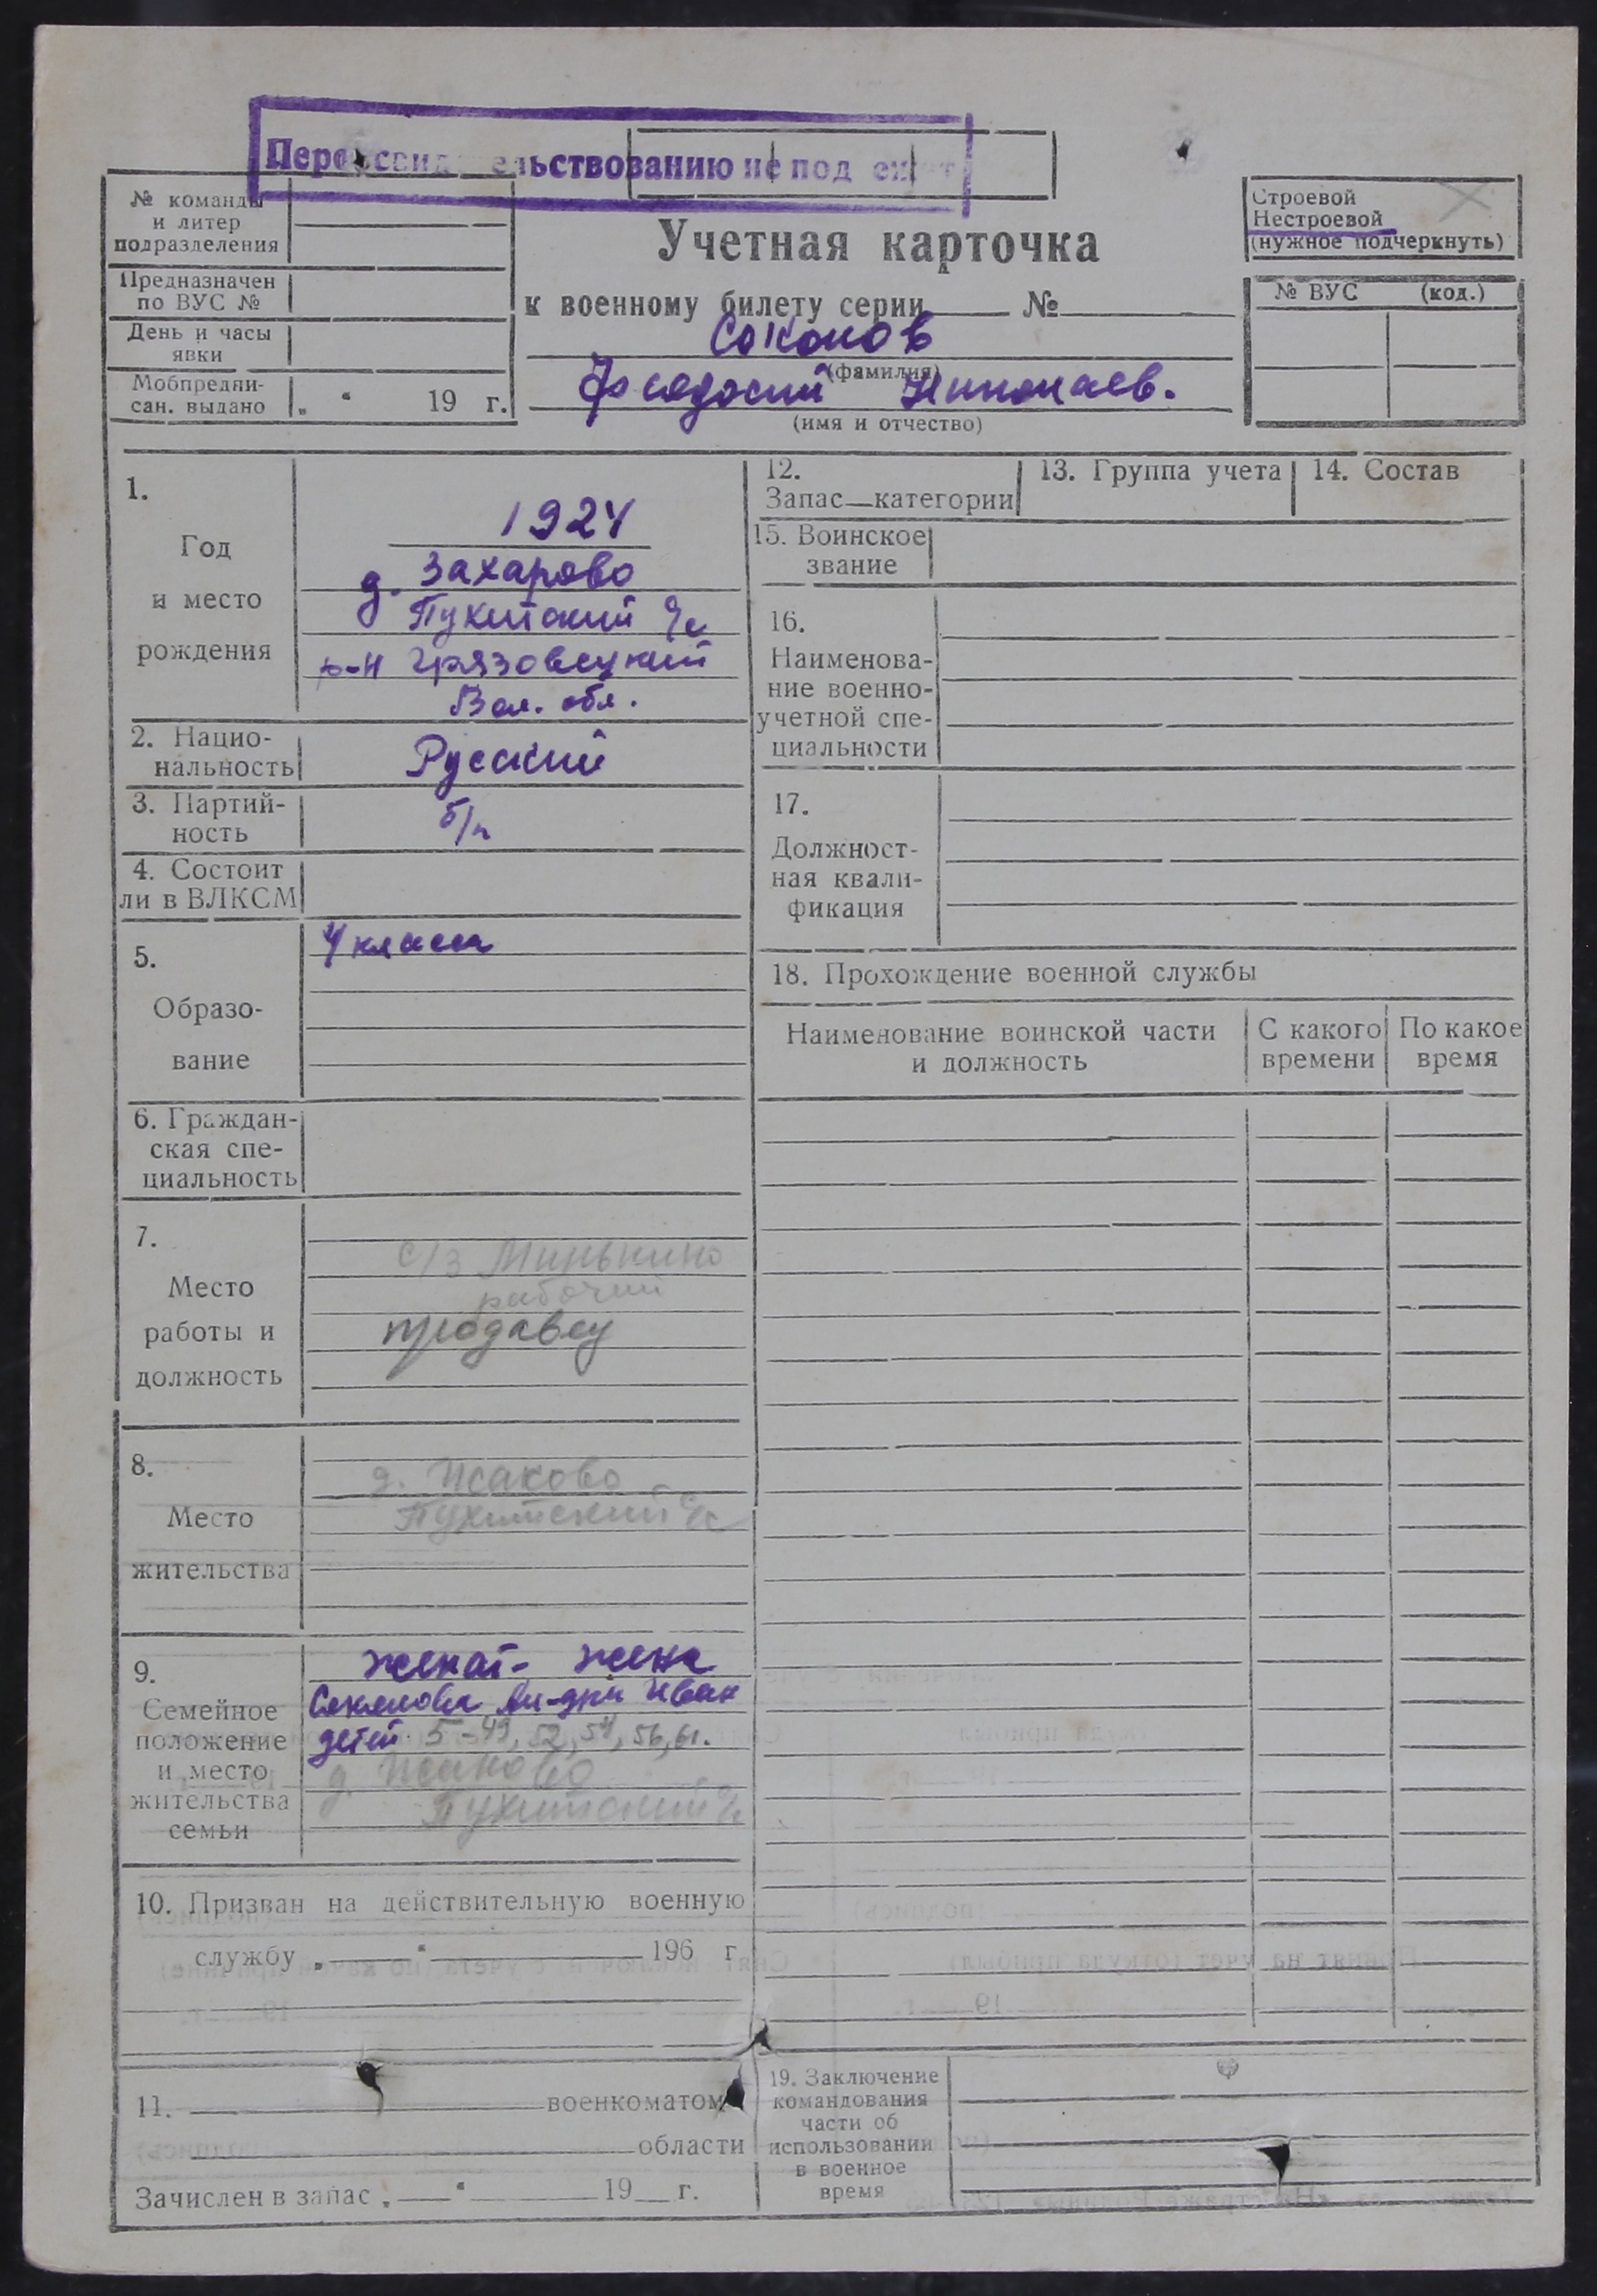 Переосвидетельствованию не подлежит
№ команды
и литер
подразделения
Предназначен
по ВУС №
День и часы
явки
Мобпредпи-
сан. выдано „ “ 19 г.
Учетная карточка
к военному билету серии №
Соколов
(фамилия)
Феодосий Николаев.
(имя и отчество)
Строевой
Нестроевой
(нужное подчеркнуть)
№ ВУС (код.)
1.
Год
и место
рождения
1924
д. Захарово
Пухитский с/с
р-н Грязовецкий
Вол. обл.
2. Нацио-
нальность
Русский
3. Партий-
ность
б/п
4. Состоит
ли в ВЛКСМ
5.
Образо-
вание
4 класса
6. Граждан-
ская спе-
циальность
7.
Место
работы и
должность
с/з Минькино
рабочий
продавец
8.
Место
жительства
д. Исаково
Пухитский с/с
9.
Семейное
положение
и место
жительства
семьи
женат - жена
Соколова Ал-дра Иван
детей 5 - 49, 52, 54, 56, 61.
д. Исаково
Пухитский с/с
10. Призван на действительную военную
службу „ “ 196 г
11. военкоматом
области
Зачислен в запас „ “ 19 г.
12.
Запас—категории
13. Группа учета
14. Состав
15. Воинское
звание
16.
Наименова-
ние военно-
учетной спе-
циальности
17.
Должност-
ная квали-
фикация
18. Прохождение военной службы
Наименование воинской части
и должность
С какого
времени
По какое
время
19. Заключение
командования
части об
использовании
в военное
время